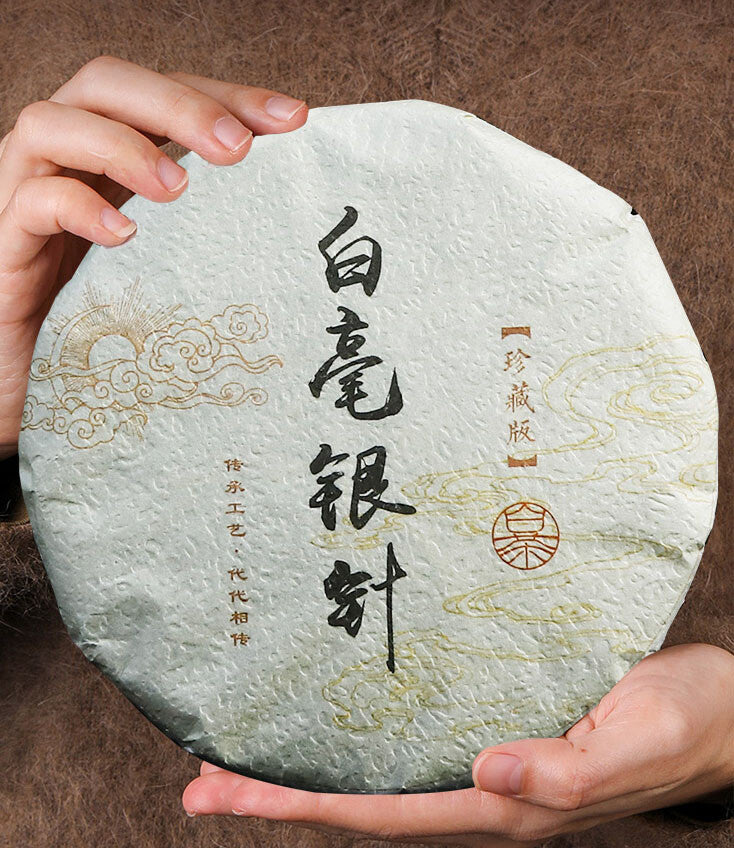 白毫银针
【珍藏版】
传承工艺·代代相传
白茶